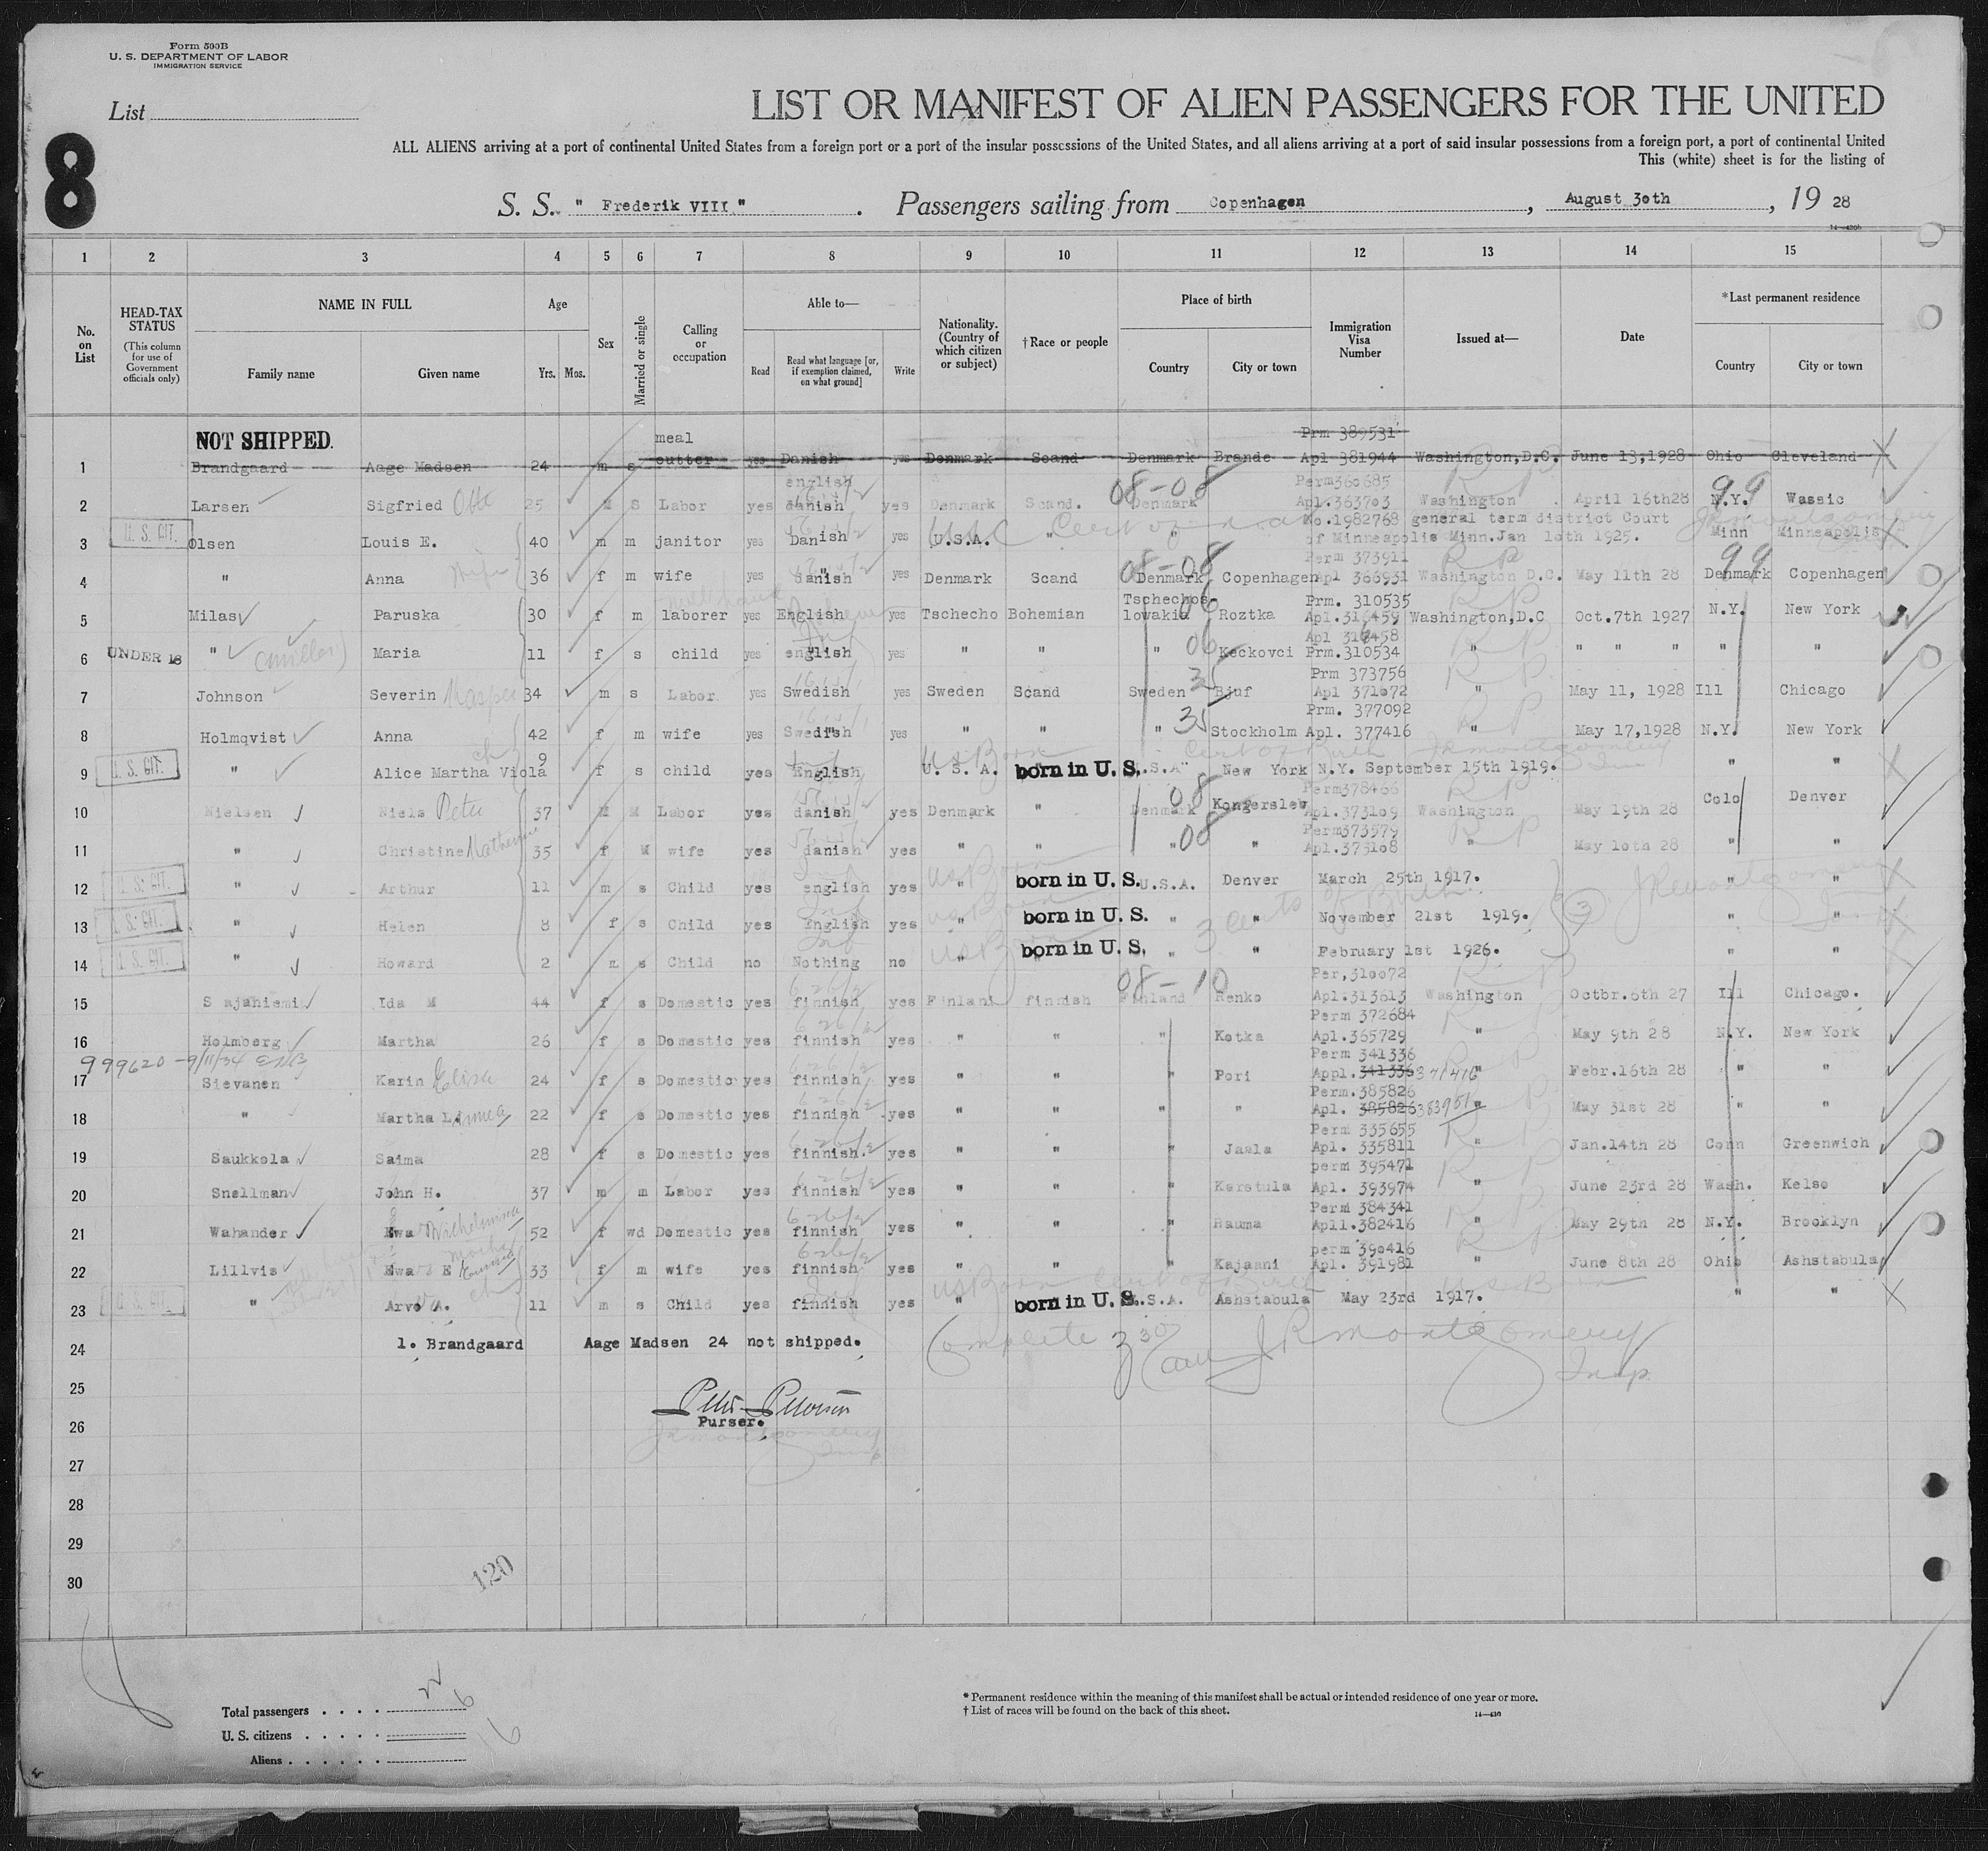 Form 500B
U. S. DEPARTMENT OF LABOR
IMMIGRATION SERVICE
List
8
LIST OR MANIFEST OF ALIEN PASSENGERS FOR THE UNITED
ALL ALIENS arriving at a port of continental United States from a foreign port or a port of the insular possessions of the United States, and all aliens arriving at a port of said insular possessions from a foreign port, a port of continental United
This (white) sheet is for the listing of
S. S. " Frederik VIII " . Passengers sailing from Copenhagen , August 30th , 19 28
1 2 3 4 5 6 7 8 9 10 11 12 13 14 15
No. on List
HEAD-TAX STATUS (This column for use of Government officials only)
NAME IN FULL
Family name Given name
Age
Yrs. Mos.
Sex
Married or single
Calling or occupation
Able to—
Read Read what language [or, if exemption claimed, on what ground] Write
Nationality. (Country of which citizen or subject)
†Race or people
Place of birth
Country City or town
Immigration Visa Number
Issued at—
Date
*Last permanent residence
Country City or town
NOT SHIPPED. meal Prm 389531
1 Brandgaard Aage Madsen 24 m s cutter yes Danish yes Denmark Scand Denmark Brande Apl 381944 Washington,D.C. June 13,1928 Ohio Cleveland
english 08-08 Perm360685 99
2 Larsen Sigfried Otto 25 M S Labor yes danish yes Denmark Scand. Denmark Apl.363703 Washington April 16th28 N.Y. Wassic
No.1982768 general term district Court
3 U. S. CIT. Olsen Louis E. 40 m m janitor yes Danish yes U.S.A. " " of Minneapolis Minn.Jan 10th 1925. Minn Minneapolis
08-08 Perm 373911 99
4 " Anna wife 36 f m wife yes Danish yes Denmark Scand Denmark Copenhagen Apl 366931 Washington D.C. May 11th 28 Denmark Copenhagen
Tschechos- Prm. 310535
5 Milas Paruska 30 f m laborer yes English yes Tschecho Bohemian lovakia 06 Roztka Apl.316459 Washington,D.C Oct.7th 1927 N.Y. New York
Apl 316458
6 UNDER 18 " Maria 11 f s child yes english yes " " " 06 Keckovci Prm.310534 " " " " " "
Prm 373756
7 Johnson Severin 34 m s Labor yes Swedish yes Sweden Scand Sweden Bjuf Apl 371072 " May 11, 1928 Ill Chicago
Prm. 377092
8 Holmqvist Anna 42 f m wife yes Swedish yes " " " 35 Stockholm Apl. 377416 " May 17,1928 N.Y. New York
US Born Cert of Birth JR Montgomery
9 U. S. CIT. " Alice Martha Viola ch 9 f s child yes English U. S. A. born in U. S. U.S.A New York N.Y. September 15th 1919. " "
Perm378466
10 Nielsen Niels Peter 37 M M Labor yes danish yes Denmark " Denmark 08 Kongerslev Apl.373109 Washington May 19th 28 Colo Denver
Perm373579
11 " Christine 35 f M wife yes danish yes " " " 08 " Apl.373108 " May 10th 28 " "
12 U. S. CIT. " Arthur 11 m s Child yes english yes " born in U. S. U.S.A. Denver March 25th 1917. " "
13 U. S. CIT. " Helen 8 f s Child yes English yes " born in U. S. " " November 21st 1919. " "
14 U. S. CIT. " Howard 2 m s Child no Nothing no " born in U. S. " " February 1st 1926. " "
08-10 Per,310072
15 S ajaniemi Ida M 44 f s Domestic yes finnish yes Finland finnish Finland Renko Apl.313613 Washington Octbr.6th 27 Ill Chicago.
Perm 372684
16 Holmberg Martha 26 f s Domestic yes finnish yes " " " Kotka Apl.365729 " May 9th 28 N.Y. New York
999620 - 9/11/34 Perm 341336
17 Sievanen Karin Elisa 24 f s Domestic yes finnish yes " " Pori Appl.341336 341416 " Febr.16th 28 " "
Perm.385826
18 " Martha L. 22 f s Domestic yes finnish yes " " " " Apl. 385826 383951 " May 31st 28 " "
Perm 335655
19 Saukkola Saima 28 f s Domestic yes finnish. yes " " " Jaala Apl. 335811 " Jan.14th 28 Conn Greenwich
perm 395471
20 Snellman John H. 37 m m Labor yes finnish yes " " " Karstula Apl. 393974 " June 23rd 28 Wash. Kelso
Perm 384341
21 Wahander Ewa Wilhelmina 52 f wd Domestic yes finnish yes " " " Rauma Apll.382416 " May 29th 28 N.Y. Brooklyn
perm 390416
22 Lillvis Ewa E 33 f m wife yes finnish yes " " " Kajaani Apl. 391981 " June 8th 28 Ohio Ashstabula
US Born Cert of Birth U.S. Born
23 U. S. CIT. " Arvo A. ch 11 m s Child yes finnish yes " born in U. S. U.S.A. Ashstabula May 23rd 1917. " "
24 1. Brandgaard Aage Madsen 24 not shipped. Complete JR Montgomery
Insp.
25
Peter Petersen
26 Purser.
JR Montgomery
Insp
27
28
29
30
120
Total passengers . . . .
U. S. citizens . . . . . 6
Aliens . . . . . .
* Permanent residence within the meaning of this manifest shall be actual or intended residence of one year or more.
† List of races will be found on the back of this sheet.
14—430